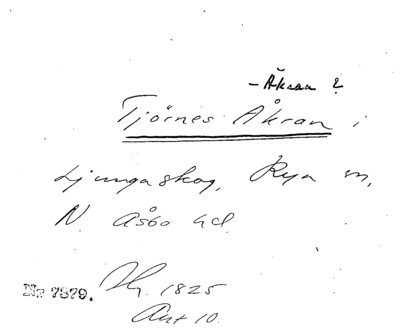 – Åkran ?
Tjörnes Åkran i
Ljungaskog, Rya sn,
N. Åsbo hd
Nr 7379. 1825
Akt 10.